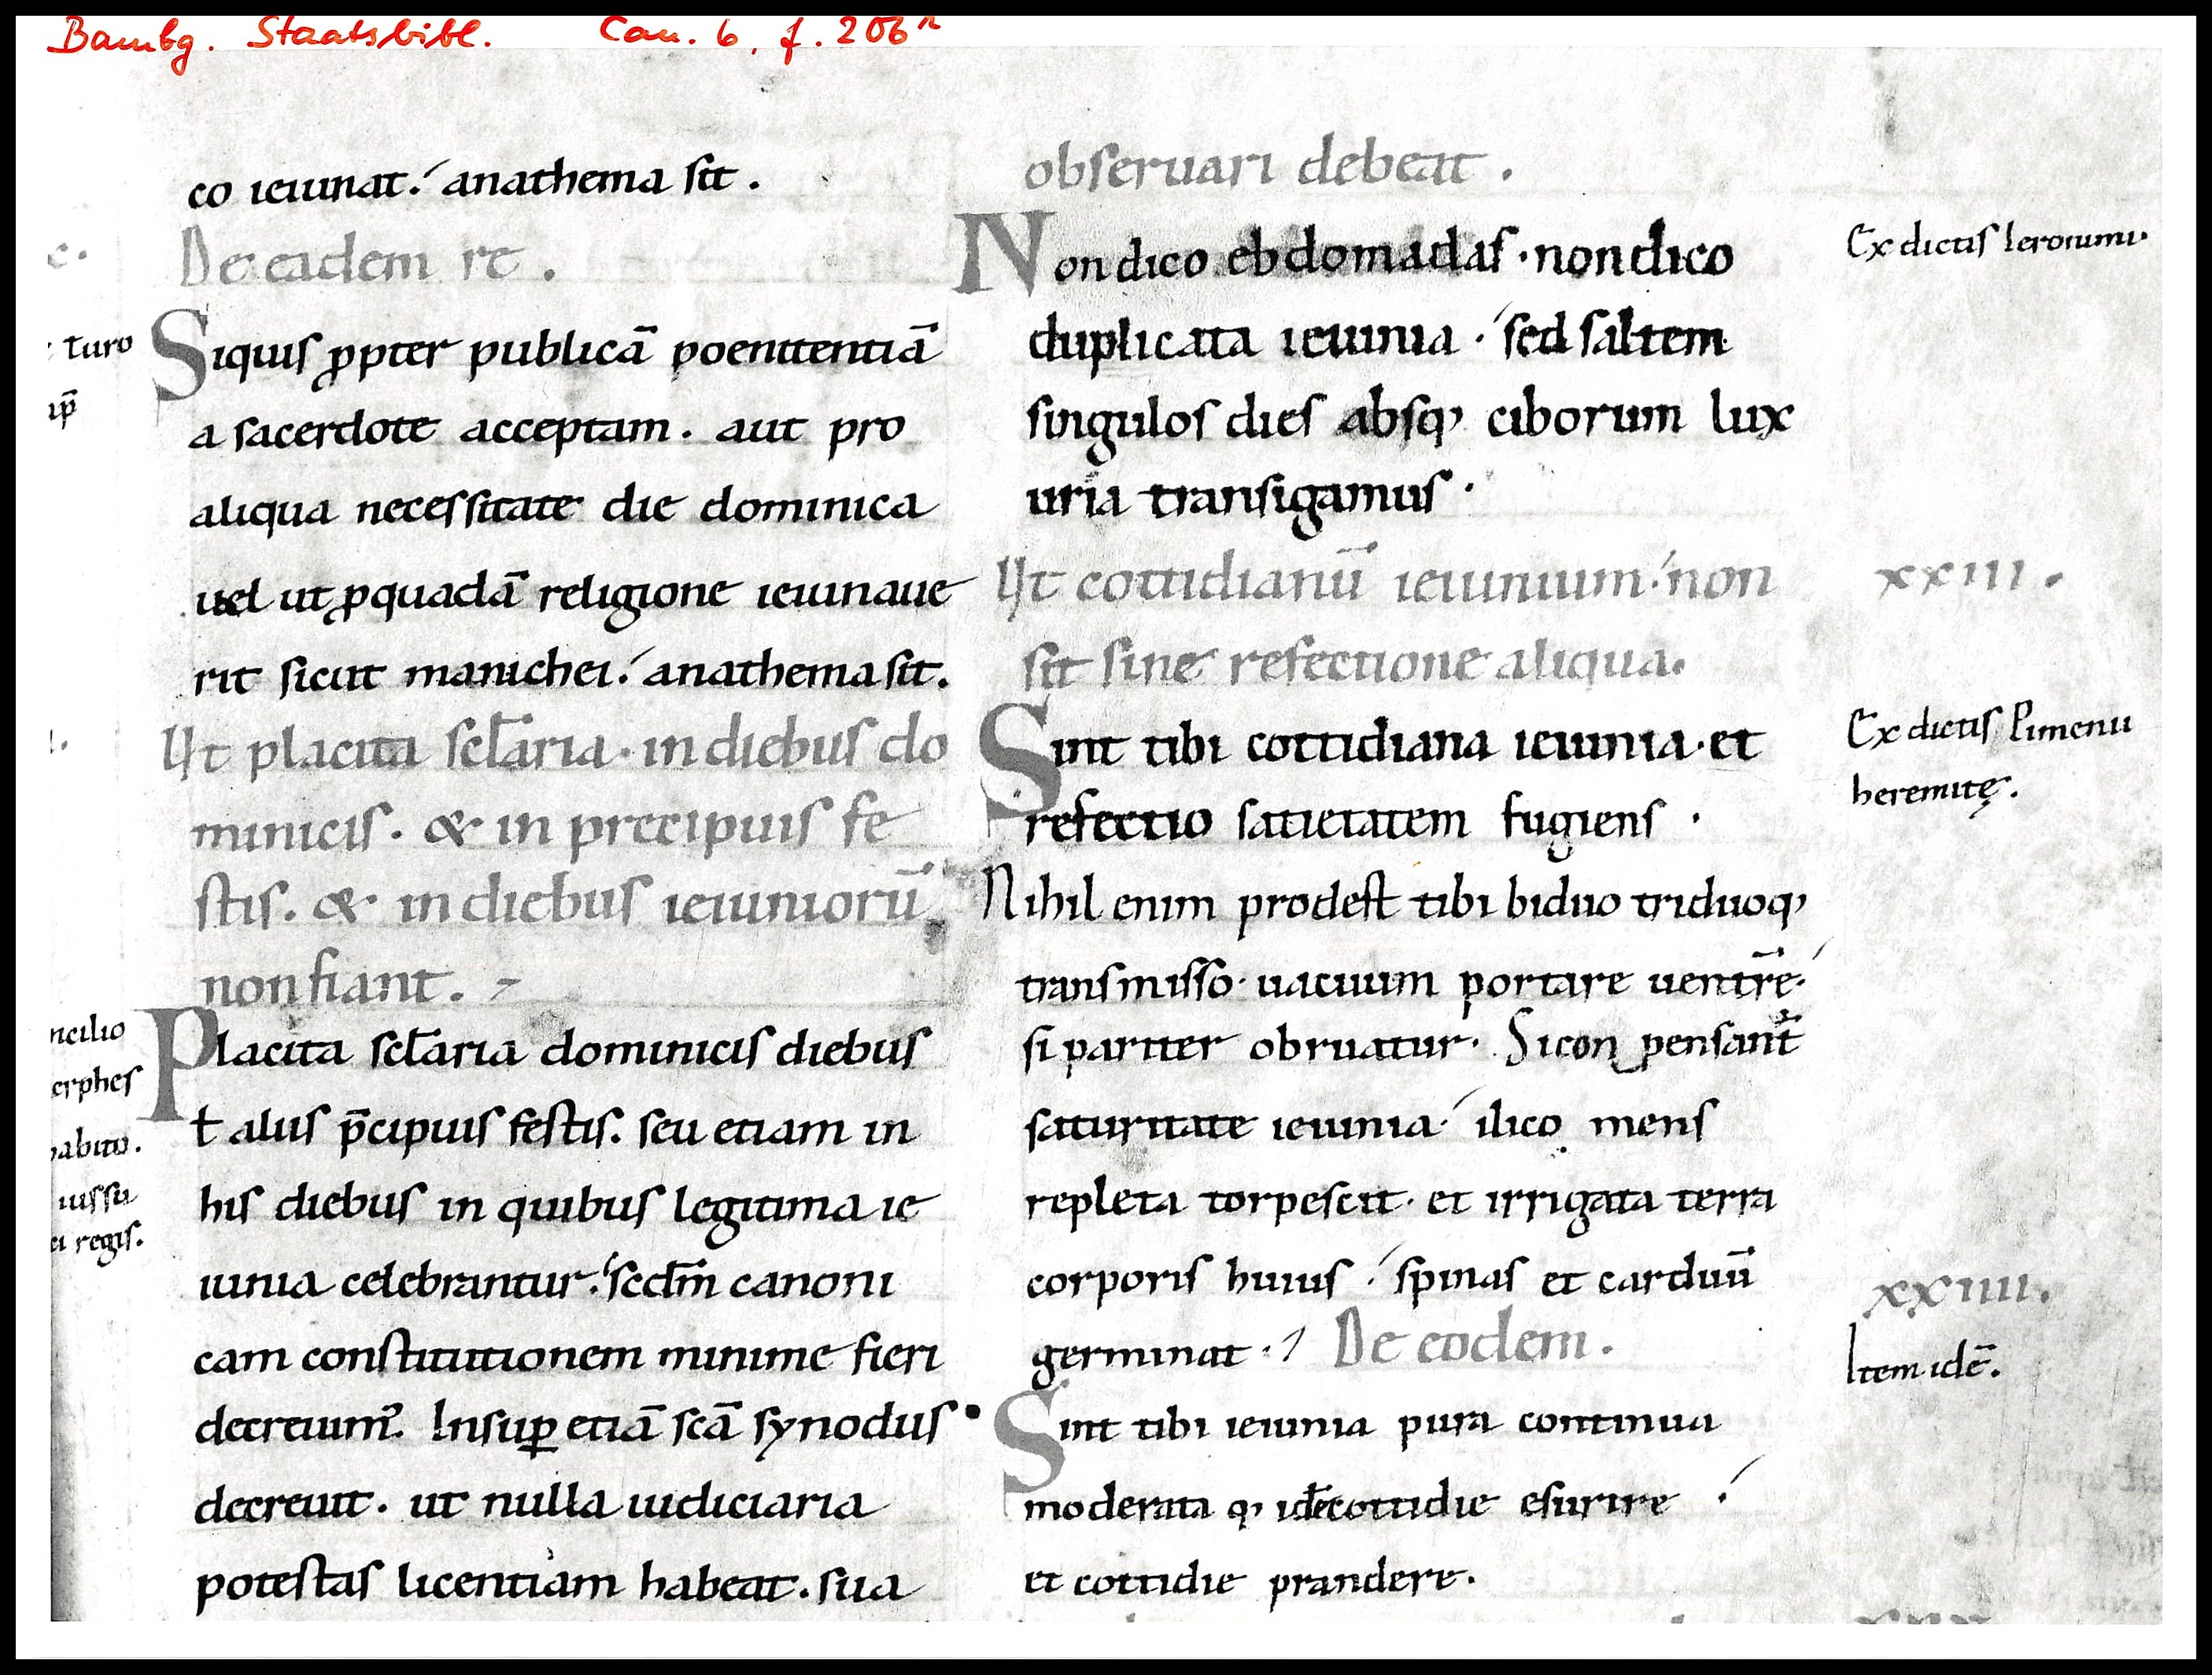 Bambg. Staatsbibl. Can. 6, f. 206r
co ieiunat. anathema sit.
De eadem re.
c.
turo
ip̄
Siquis ꝓpter publicā poenitentiā
a sacerdote acceptam. aut pro
aliqua necessitate die dominica
uel ut ꝓquadā religione ieiunaue
rit sicut manichei. anathema sit.
Ut placita scłaria. in diebus do
minicis. & in precipuis fe
stis. & in diebus ieiuniorū
non fiant.
ncilio
erphes
habito.
iussu
ei regis.
Placita scłaria dominicis diebus
ł aliis p̄cipuis festis. seu etiam in
his diebus in quibus legitima ie
iunia celebrantur. scdm̄ canoni
cam constitutionem minime fieri
decreuim᾽. Insuꝑ etiā scā synodus
decreuit. ut nulla iudiciaria
potestas licentiam habeat. sua
obseruari debeat.
Non dico ebdomadas. non dico
duplicata ieiunia. sed saltem
singulos dies absq; ciborum lux
uria transigamus.
Ex dictis Ieronimi.
Ut cottidianū ieiunium. non
sit sine refectione aliqua.
xxiii.
Sint tibi cottidiana ieiunia. et
refectio satietatem fugiens.
Ex dictis Pimenii
heremitę.
Nihil enim prodest tibi biduo triduoq;
transmisso. uacuum portare uentrē.
si pariter obruatur. Si con pensant̄
saturitate ieiunia. ilico mens
repleta torpescit. et irrigata terra
corporis huius. spinas et carduū
germinat. De eodem.
xxiiii.
Item idē.
Sint tibi ieiunia pura continua
moderata q; idē cottidie esurire
et cottidie prandere.